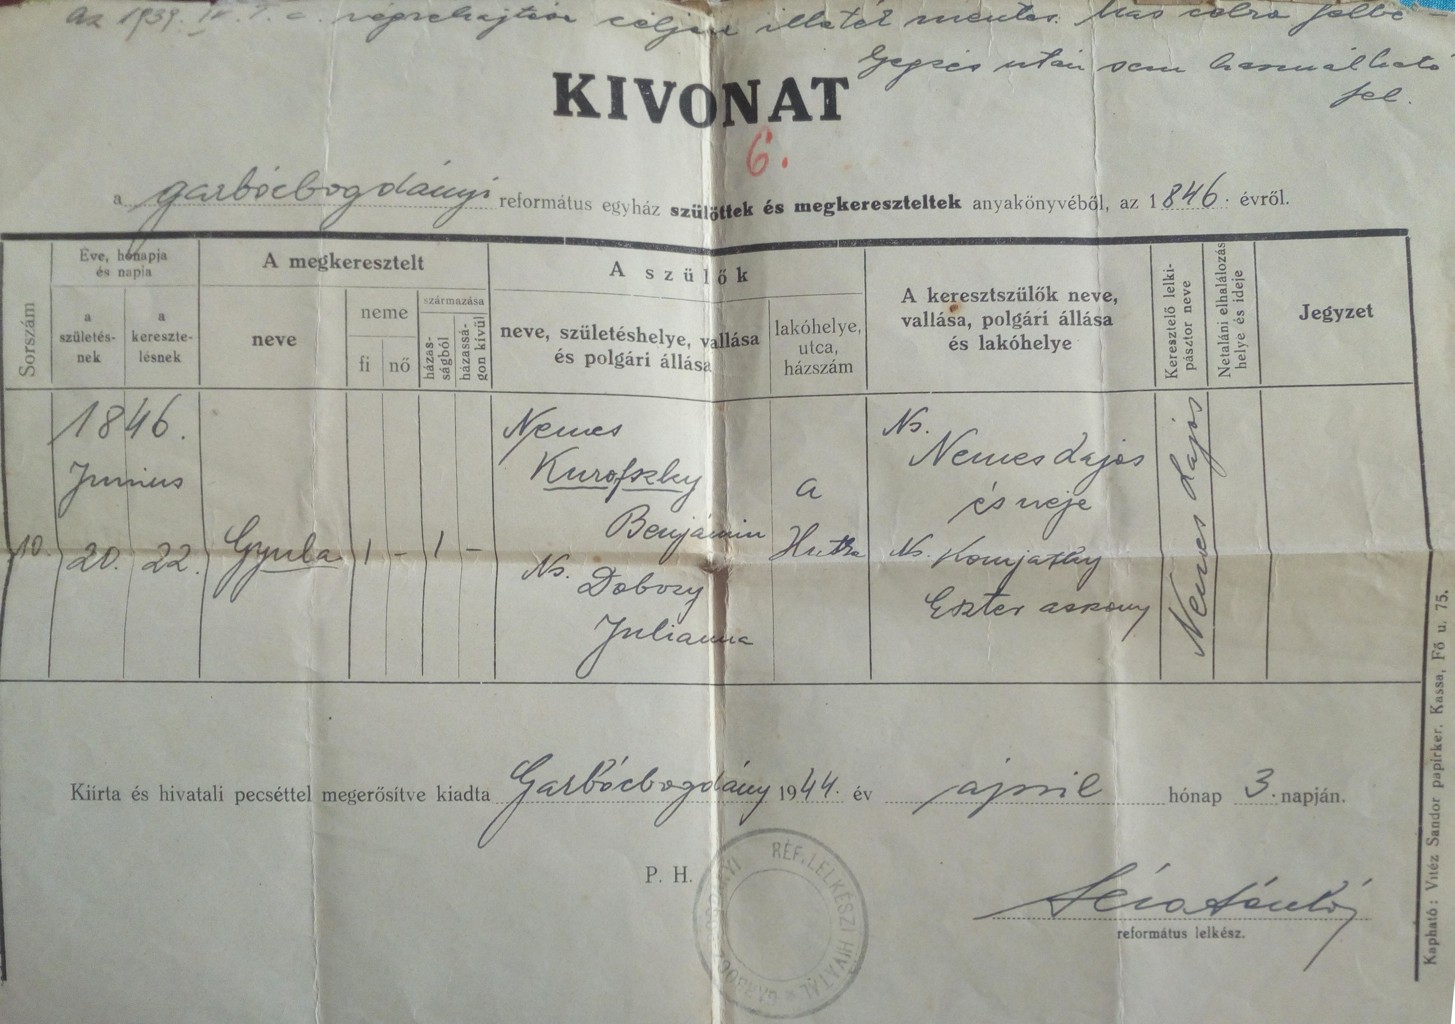 Az 1939. IV. t. c. végrehajtása céljára illeték mentes. Más célra felbé-
lyegzés után sem használható
fel.
KIVONAT
6.
a garbócbogdányi református egyház szülöttek és megkereszteltek anyakönyvéből, az 1846. évről.
Sorszám
Éve, hónapja
és napja
a
születés-
nek
a
kereszte-
lésnek
A megkeresztelt
neve
neme
fi
nő
származása
házas-
ságból
házassá-
gon kívül
A szülők
neve, születéshelye, vallása
és polgári állása
lakóhelye,
utca,
házszám
A keresztszülők neve,
vallása, polgári állása
és lakóhelye
Keresztelő lelki-
pásztor neve
Netaláni elhalálozás
helye és ideje
Jegyzet
10.
1846.
Junius
20. 22.
Gyula
1 - 1 -
Nemes
Kurofszky
Benjámin
Ns. Dobozy
Julianna
a
Hutka
Ns.
Nemes Lajos
és neje
Ns. Komjathy
Eszter asszony
Nemes Lajos
Kiírta és hivatali pecséttel megerősítve kiadta Garbócbogdány 1944. év április hónap 3. napján.
P. H.
REF. LELKÉSZI HIVATAL
református lelkész.
Kapható: Vitéz Sándor papírker. Kassa, Fő u. 75.